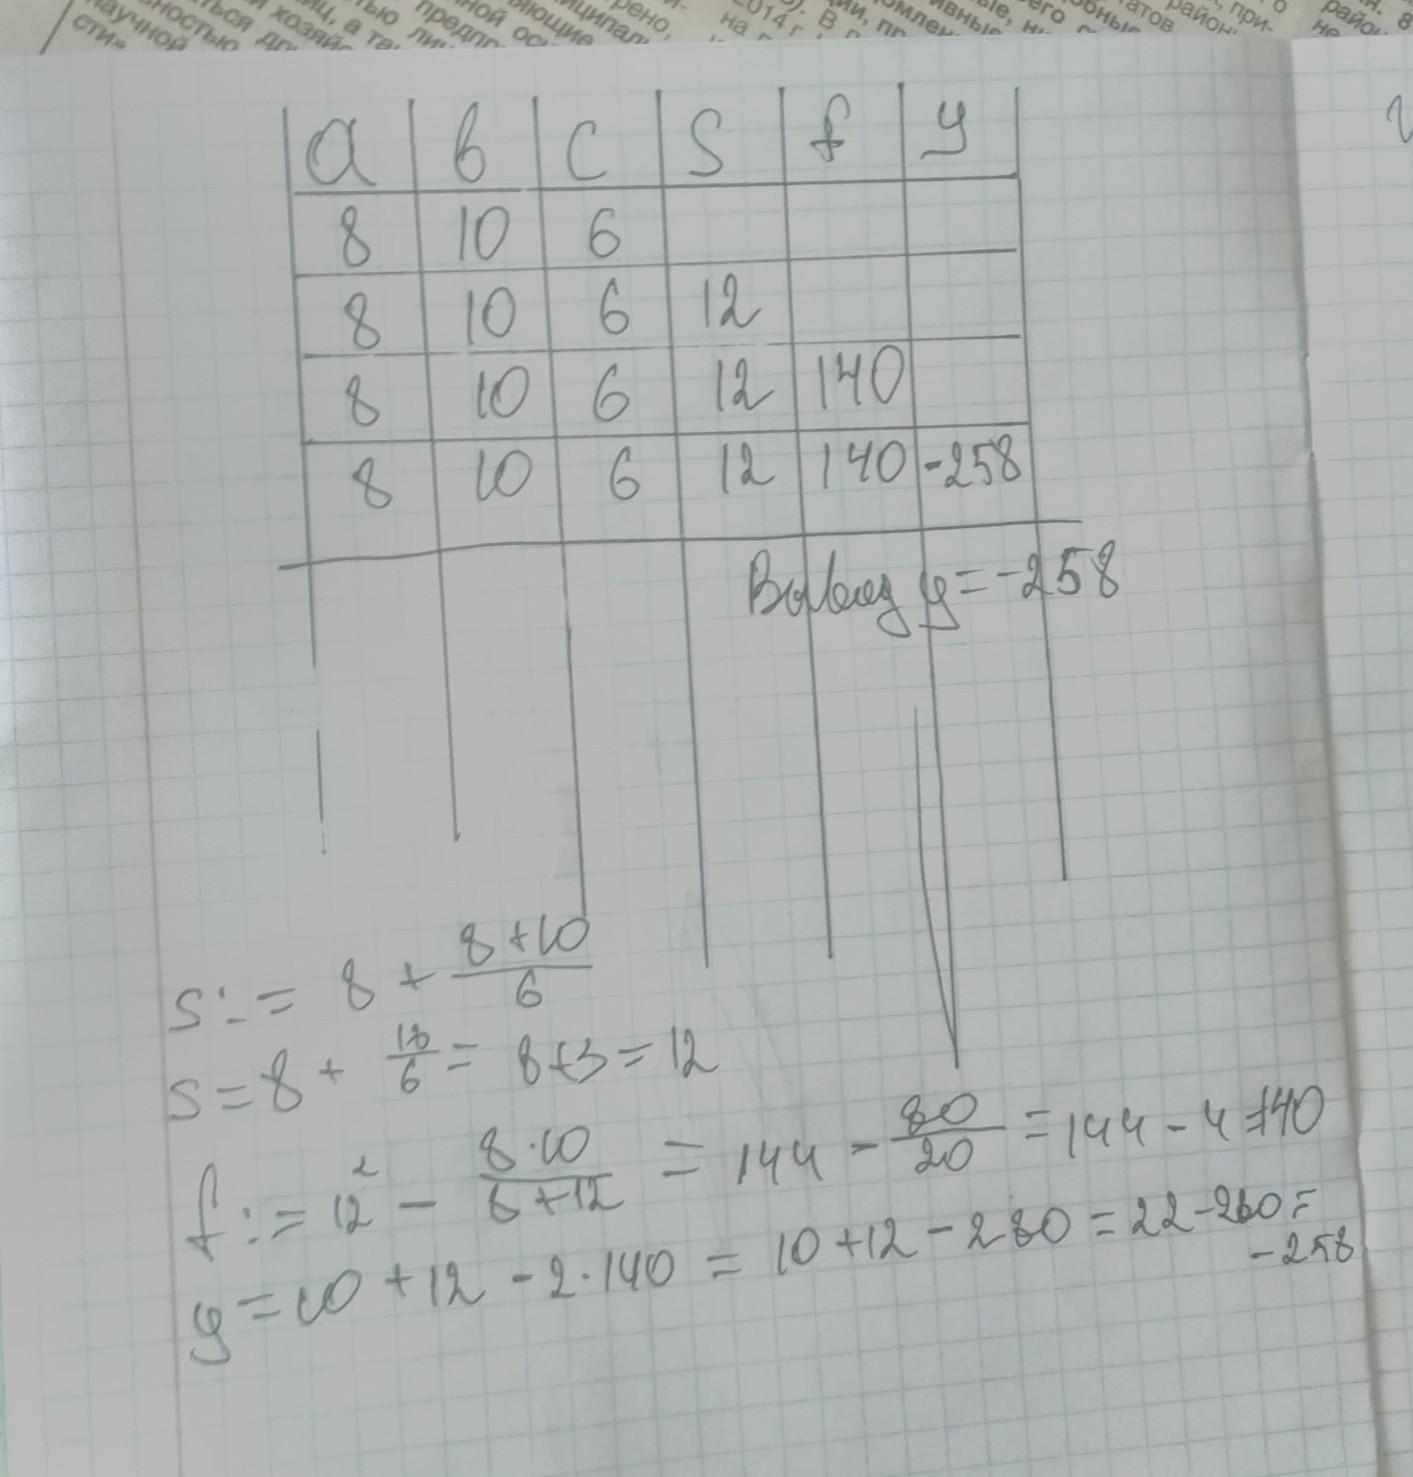 a b c S f y
8 10 6
8 10 6 12
8 10 6 12 140
8 10 6 12 140 -258
Вывод y = -258
S := 8 + (8+10)/6
S = 8 + 18/6 = 8+3 = 12
f := 12² - (8·10)/(8+12) = 144 - 80/20 = 144 - 4 = 140
y = 10 + 12 - 2·140 = 10 + 12 - 280 = 22 - 280 =
-258